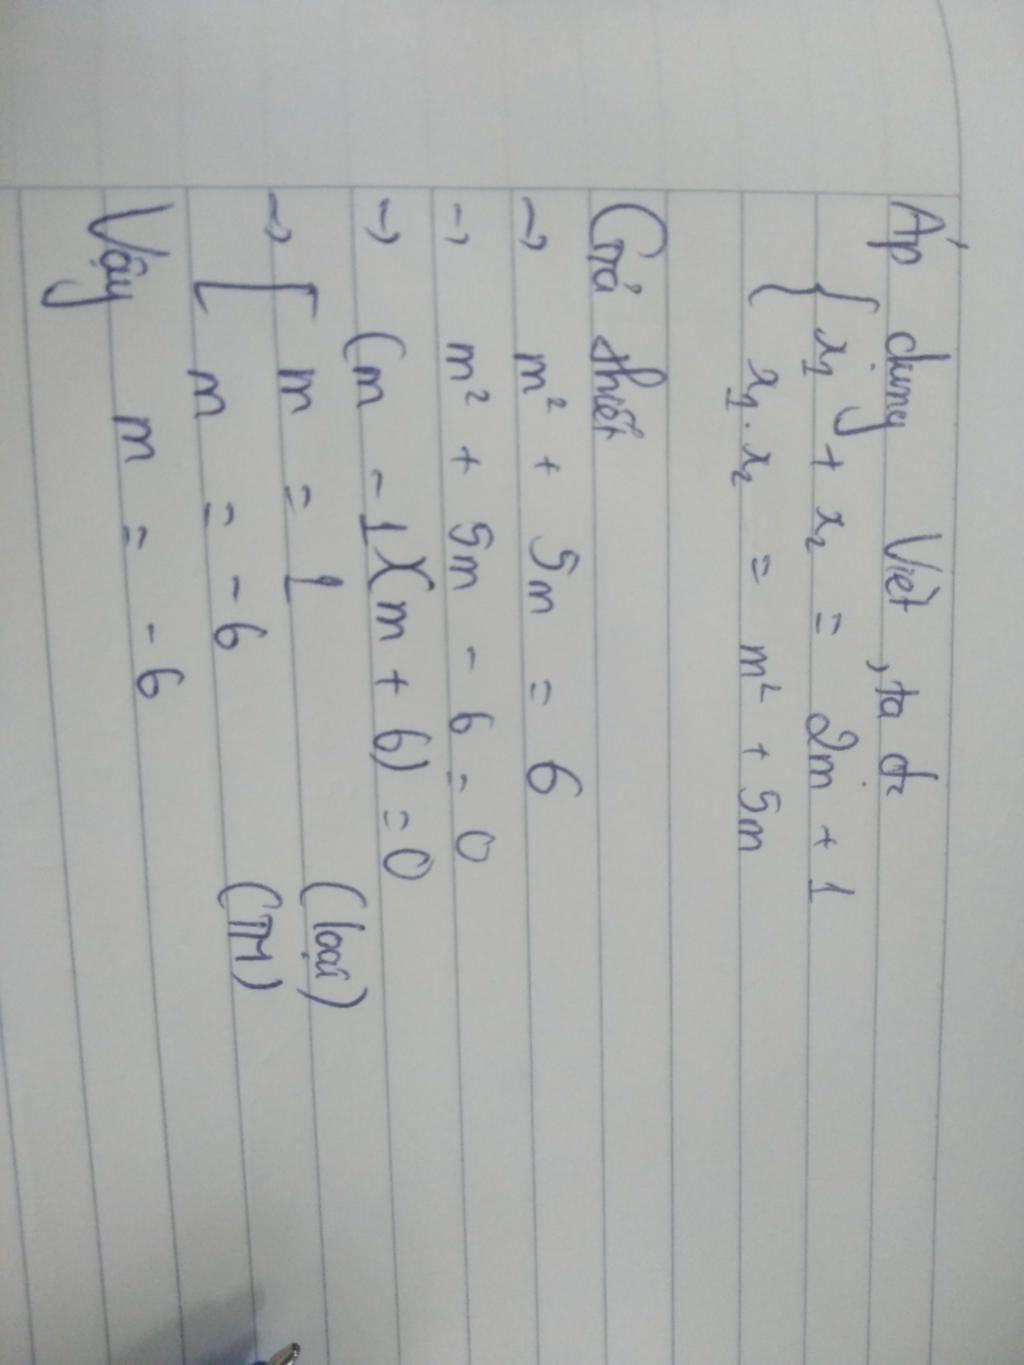 Áp dụng Viet, ta đc
{ x₁ + x₂ = 2m + 1
x₁.x₂ = m² + 5m
Giả thiết
→ m² + 5m = 6
→ m² + 5m - 6 = 0
→ (m - 1)(m + 6) = 0
→ [ m = 1 (loại)
m = -6 (TM)
Vậy m = -6